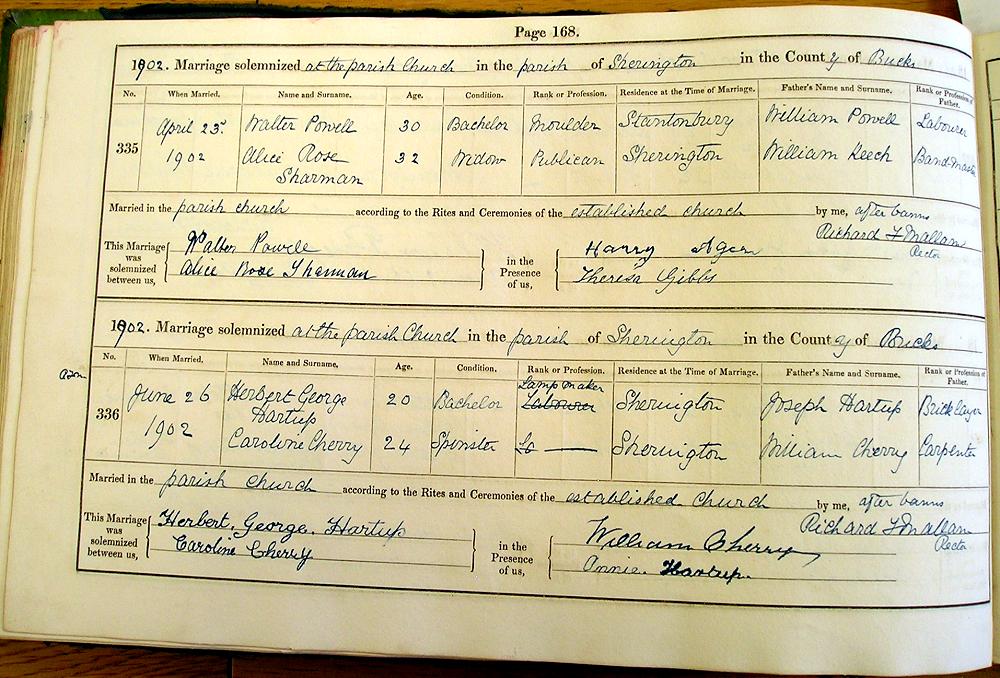 Page 168.
1902. Marriage solemnized at the parish Church in the parish of Sherington in the County of Bucks
No. When Married. Name and Surname. Age. Condition. Rank or Profession. Residence at the Time of Marriage. Father's Name and Surname. Rank or Profession of Father.
335 April 23rd 1902 Walter Powell 30 Bachelor Moulder Stantonbury William Powell Labourer
Alice Rose Sharman 32 Widow Publican Sherington William Keech Band-Master
Married in the parish church according to the Rites and Ceremonies of the established church by me, after banns
Richard F Mallam
Rector
This Marriage was solemnized between us, Walter Powell
Alice Rose Sharman
in the Presence of us, Harry
Theresa Gibbs
1902. Marriage solemnized at the parish Church in the parish of Sherington in the County of Bucks
No. When Married. Name and Surname. Age. Condition. Rank or Profession. Residence at the Time of Marriage. Father's Name and Surname. Rank or Profession of Father.
336 June 26 1902 Herbert George Hartup 20 Bachelor Lamp maker Labourer Sherington Joseph Hartup Bricklayer
Caroline Cherry 24 Spinster Sherington William Cherry Carpenter
Married in the parish church according to the Rites and Ceremonies of the established church by me, after banns
Richard F Mallam
Rector
This Marriage was solemnized between us, Herbert. George. Hartup
Caroline Cherry
in the Presence of us, William Cherry
Annie. Hartup.